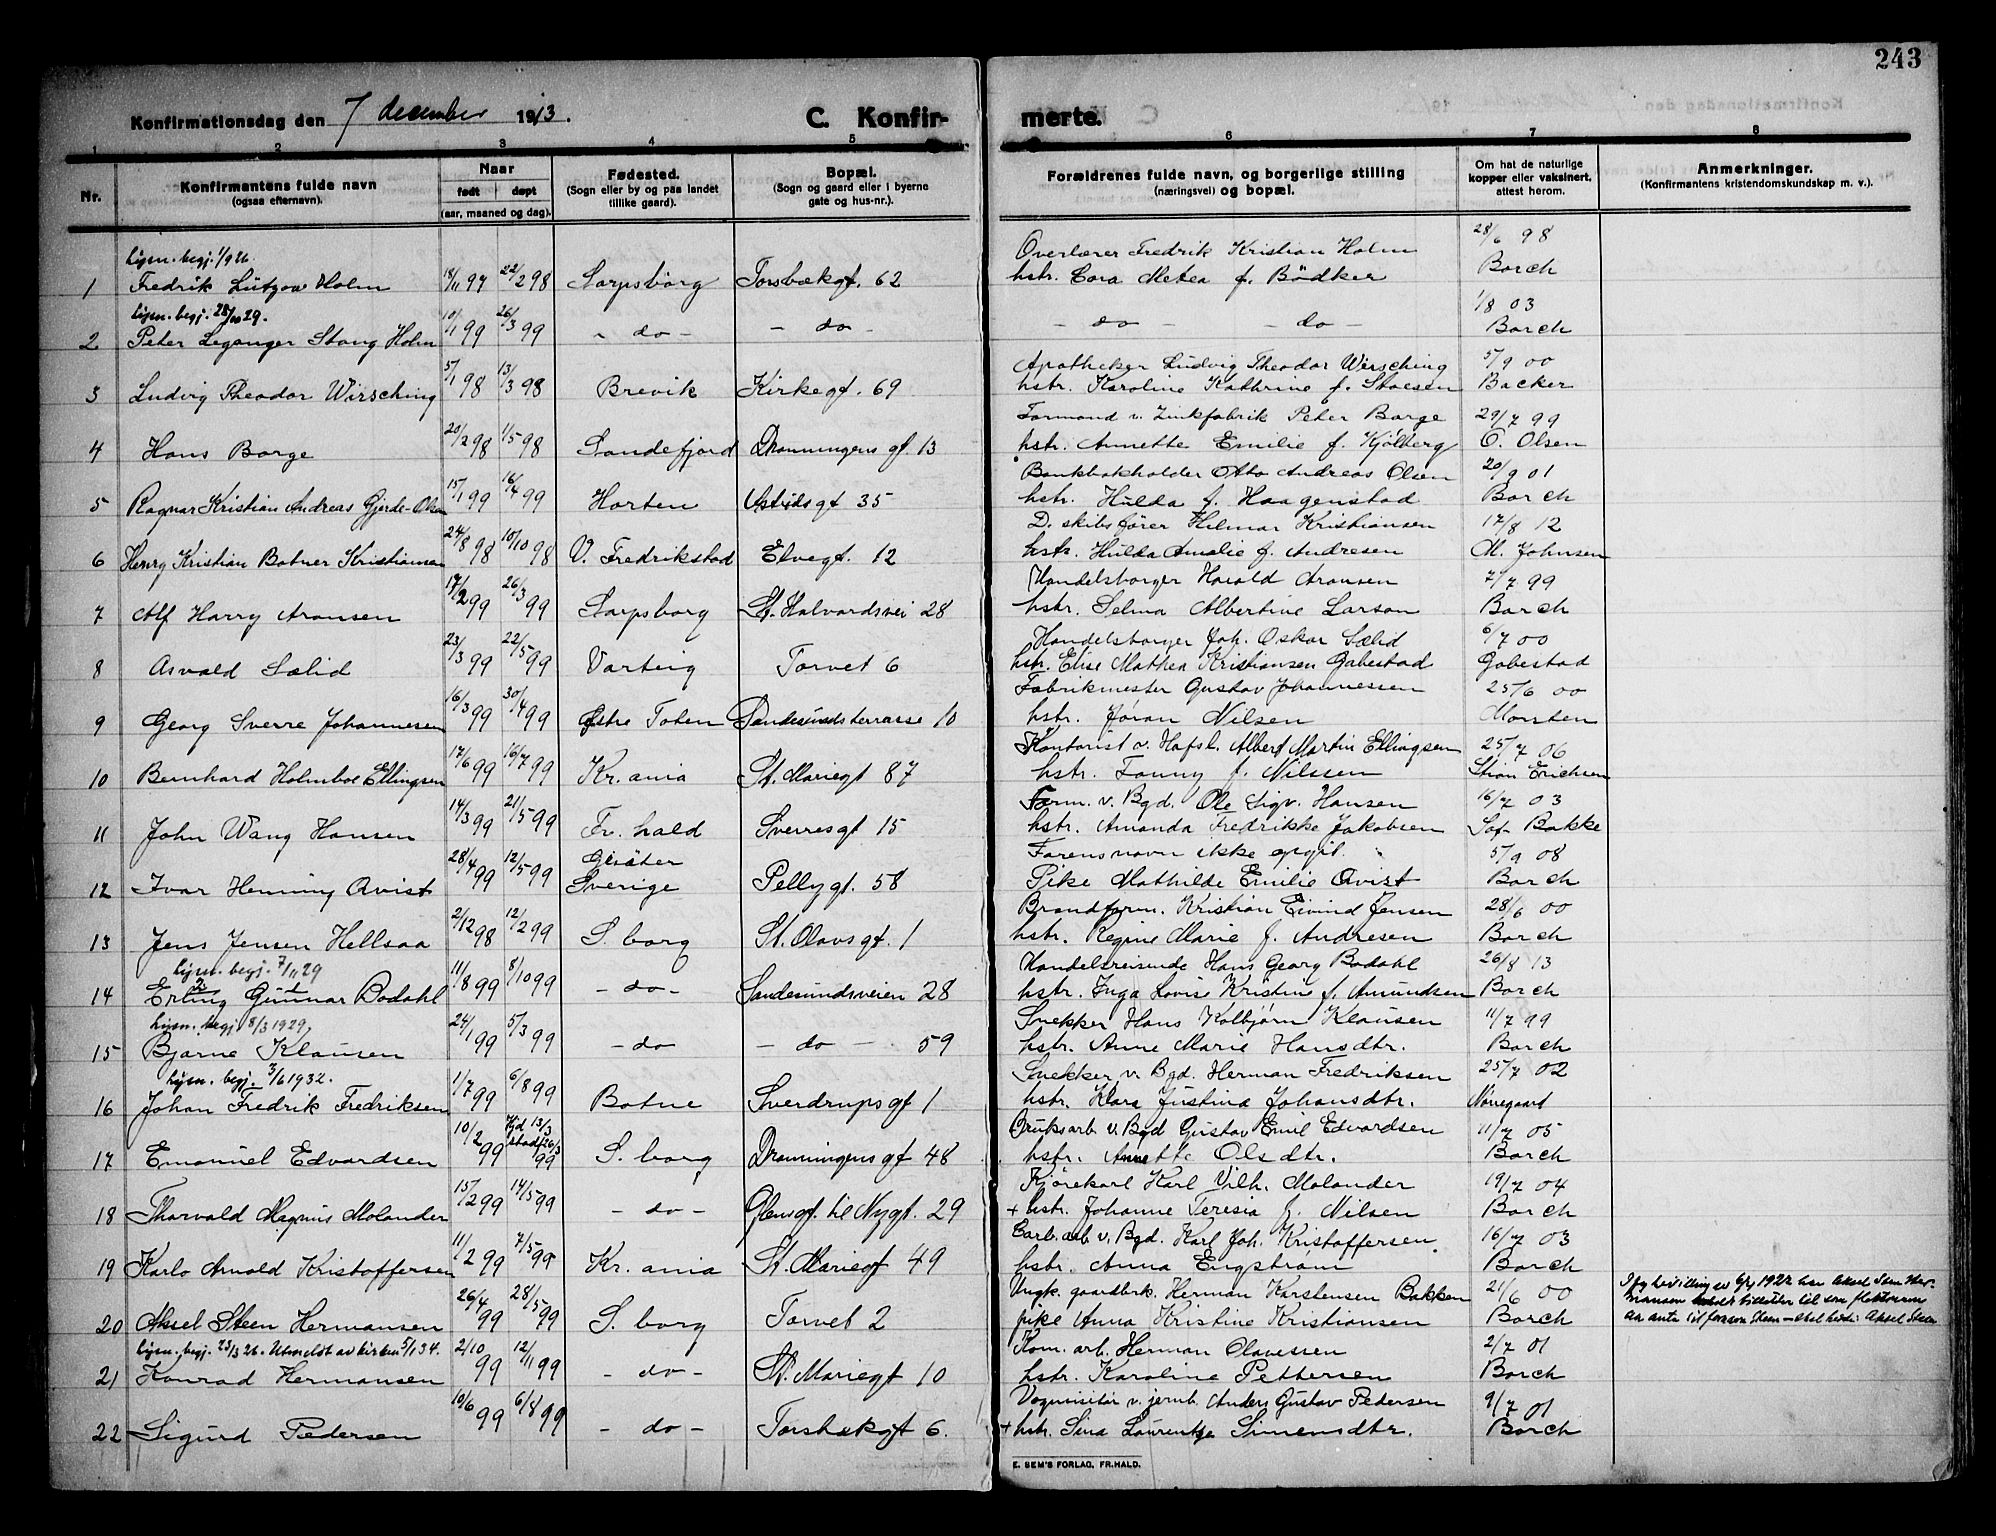 243
Konfirmationsdag den 7 december 1913.
C. Konfirmerte.
1 2 3 4 5 6 7 8
Nr.
Konfirmantens fulde navn
(ogsaa efternavn).
Naar
født døpt
(aar, maaned og dag).
Fødested.
(Sogn eller by og paa landet
tillike gaard).
Bopæl.
(Sogn og gaard eller i byerne
gate og hus-nr.).
Forældrenes fulde navn, og borgerlige stilling
(næringsvei) og bopæl.
Om hat de naturlige
kopper eller vaksinert,
attest herom.
Anmerkninger.
(Konfirmantens kristendomskundskap m. v.).
Lysn. begj. 1/9 26.
Overlærer Fredrik Kristian Holm 28/6 98
1 Fredrik Lützow Holm 18/11 97 22/2 98 Sarpsborg Torsbækgt. 62 hstr. Cora Metea f. Bødker Borch
Lysn. begj. 28/10 29.
1/8 03
2 Peter Leganger Stang Holm 10/1 99 26/3 99 - do - - do - - do - - do - Borch
Apotheker Ludvig Theodor Wirsching 5/9 00
3 Ludvig Theodor Wirsching 5/1 98 13/3 98 Brevik Kirkegt. 69 hstr. Karoline Kathrine f. Stoesen Backer
Formand v. Zinkfabrik Peter Borge 29/7 99
4 Hans Borge 20/2 98 1/5 98 Sandefjord Dronningens gt. 13 hstr. Annette Emilie f. Kjølberg O. Olsen
Bankbokholder Otto Andreas Olsen 20/9 01
5 Ragnar Kristian Andreas Gjerde-Olsen 15/1 99 16/4 99 Horten Astridsgt 35 hstr. Hulda f. Haagenstad Borch
D. skibsfører Hilmar Kristiansen 17/8 12
6 Henry Kristian Botner Kristiansen 24/8 98 10/10 98 V. Fredrikstad Elvegt. 12 hstr. Hulda Amalie f. Andresen M. Johnsen
Handelsborger Harald Aronsen 7/7 99
7 Alf Harry Aronsen 17/2 99 26/3 99 Sarpsborg St. Halvardsvei 28 hstr. Selma Albertine Larson Borch
Handelsborger Joh. Oskar Sælid 6/7 00
8 Asvald Sælid 23/3 99 22/5 99 Varteig Torvet 6 hstr. Elise Mathea Kristiansen Gabestad Gabestad
Fabrikmester Gustav Johannessen 25/6 00
9 Georg Sverre Johannesen 16/3 99 30/4 99 Østre Toten Sandesundsterrasse 10 hstr. Jøran Nilsen Monten
Kontorist v. Hafsl. Albert Martin Ellingsen 25/7 06
10 Bernhard Holmboe Ellingsen 17/6 99 16/7 99 Kr.ania St. Mariegt 87 hstr. Fanny f. Nilssen Stian Erichsen
Form. v. Bgd. Ole Sigv. Hansen 16/7 03
11 John Wang Hansen 14/3 99 21/5 99 Fr. hald Sverresgt 15 hstr. Amanda Fredrikke Jakobsen Sof- Bakke
Farensnavn ikke opgit. 5/9 08
12 Ivar Henning Qvist 28/4 99 12/5 99 Sverige Pellygt. 58 Pike Mathilde Emilie Qvist Borch
Brandform. Kristian Eivind Jensen 28/6 00
13 Jens Jensen Hellsaa 2/12 98 12/2 99 S. borg St. Olavs gt. 1 hstr. Regine Marie f. Andresen Borch
Lysn. begj. 7/11 29
Handelsreisende Hans Georg Bodahl 26/8 13
2 1
14 Erling Gunnar Bodahl 11/8 99 8/10 99 - do - Sandesundsveien 28 hstr. Inga Lovise Kristine f. Amundsen Borch
Lysn. begj. 8/3 1929,
Snekker Hans Kolbjørn Klausen 11/7 99
15 Bjarne Klausen 24/1 99 5/3 99 - do - - do - 59 hstr. Anne Marie Hansdtr. Borch
Lysn. begj. 3/6 1932.
Snekker v. Bgd. Herman Fredriksen 25/7 02
16 Johan Fredrik Fredriksen 1/7 99 6/8 99 Botne Sverdrupsgt 1 hstr. Klara Justina Johansdtr. Nørregaard
Bruksarb v. Bgd Gustav Emil Edvardsen 11/7 05
17 Emanuel Edvardsen 10/2 99 Hjd 13/3 stadf. 26/3 99 S. borg Dronningens gt 48 hstr. Annette Olsdtr. Borch
Kjørekarl Karl Vilh. Molander 19/7 04
18 Thorvald Magnus Molander 15/2 99 14/5 99 - do - Glensgt. til Nygt. 29 + hstr. Johanne Teresia f. Nilsen Borch
Carb. arb v. Bgd. Karl Joh. Kristoffersen. 16/7 03
19 Karlo Arnold Kristoffersen 11/2 99 7/5 99 Kr. ania St. Mariegt 49 hstr. Anna Engstrøm Borch
Ungk. gaardbrk. Herman Karstensen Bakken 21/6 00
20 Aksel Steen Hermansen 26/4 99 28/5 99 S. borg Torvet 2 pike Anna Kristine Kristiansen Borch
Ifg bevilling av 6/4 1922 har Aksel Steen Hermansen tilladelse til som slektsnavn
aa anta Steen - Aksel Steen
Lysn. begj. 23/3 26. Utmeldt av kirken 5/1 34.
Kom. arb. Herman Olavessen 2/7 01
21 Konrad Hermansen 2/10 99 12/11 99 - do - St. Mariegt 10 hstr. Karoline Pettersen Borch
Vognvisitør v. jernb. Anders Gustav Pedersen 9/7 01
22 Sigurd Pedersen 10/6 99 6/8 99 - do - Torsbækgt 6. + hstr. Sina Laurentze Simensdtr. Borch
E. SEM'S FORLAG, FR.HALD.